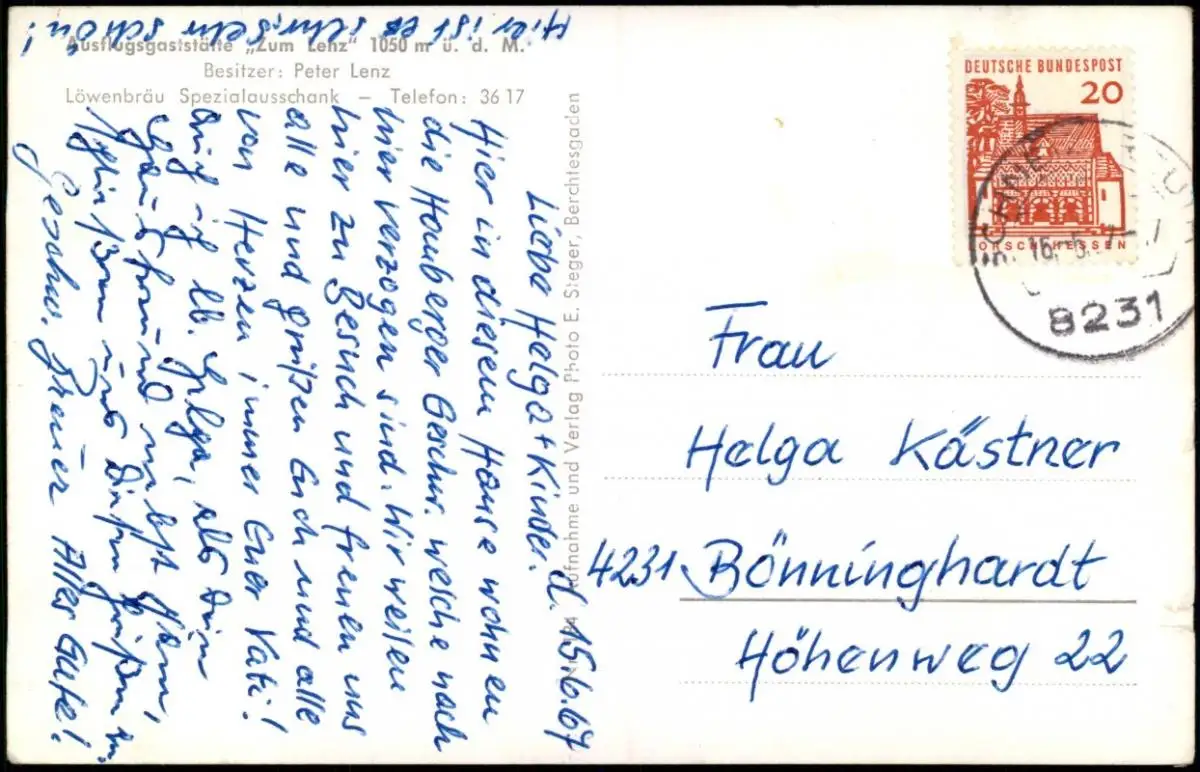 Ausflugsgaststätte „Zum Lenz" 1050 m ü. d. M.
Besitzer: Peter Lenz
Löwenbräu Spezialausschank – Telefon: 36 17
Aufnahme und Verlag Photo E. Steger, Berchtesgaden
d. 15.6.67
Liebe Helga + Kinder.
Hier in diesem Hause wohnen
die Hauberger Geschw. welche nach
hier verzogen sind. Wir weilen
hier zu Besuch und freuen uns
alle und grüßen Euch und alle
von Herzen immer Euer Vati!
Auch ich lb. Helga, als Dein
nebst
uns
Geschw. Alles Gute!
Hier ist es sehr, sehr schön!
DEUTSCHE BUNDESPOST
20
LORSCH/HESSEN
8231
Frau
Helga Kästner
4231 Bönninghardt
Höhenweg 22